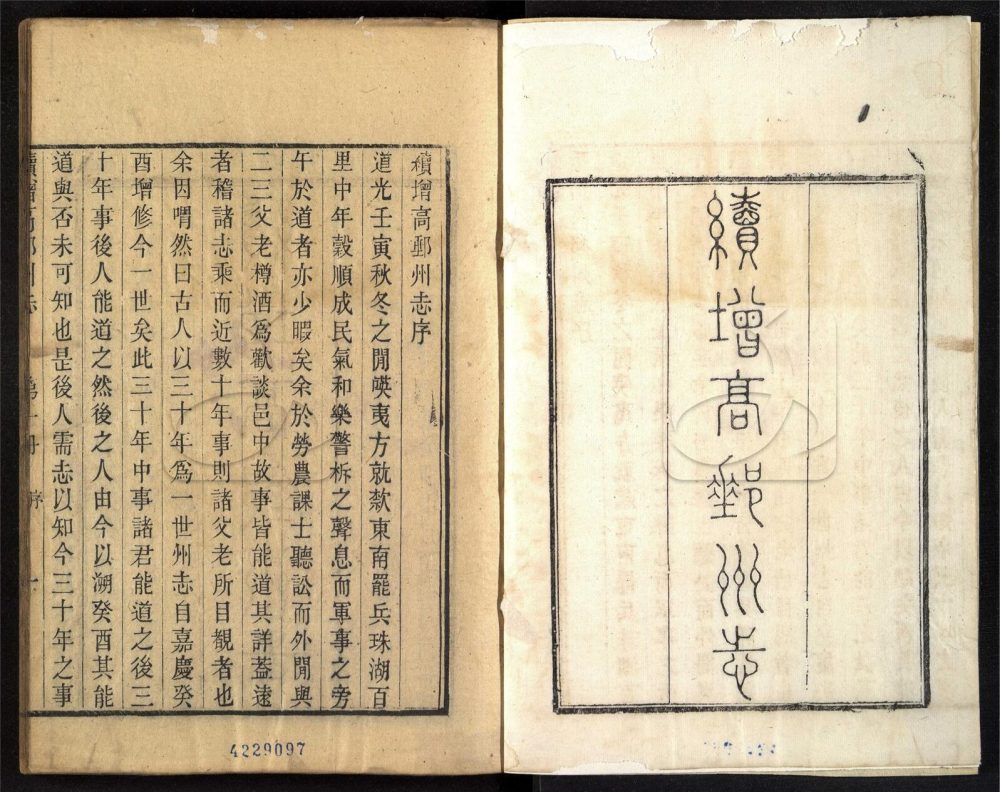 續增高郵州志
續增高郵州志序
道光壬寅秋冬之閒𠸄夷方就欵東南罷兵珠湖百
里中年穀順成民氣和樂警柝之聲息而軍事之旁
午於道者亦少暇矣余於勞農課士聽訟而外閒與
二三父老樽酒爲歡談邑中故事皆能道其詳葢遠
者稽諸志乘而近數十年事則諸父老所目覩者也
余因喟然曰古人以三十年爲一世州志自嘉慶癸
酉增修今一世矣此三十年中事諸君能道之後三
十年事後人能道之然後之人由今以溯癸酉其能
道與否未可知也是後人需志以知今三十年之事
續增高郵州志 第一冊 序 一
4229097